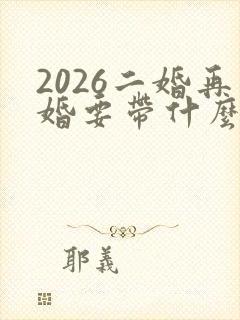 2026二婚再
婚要帶什麼
耶義